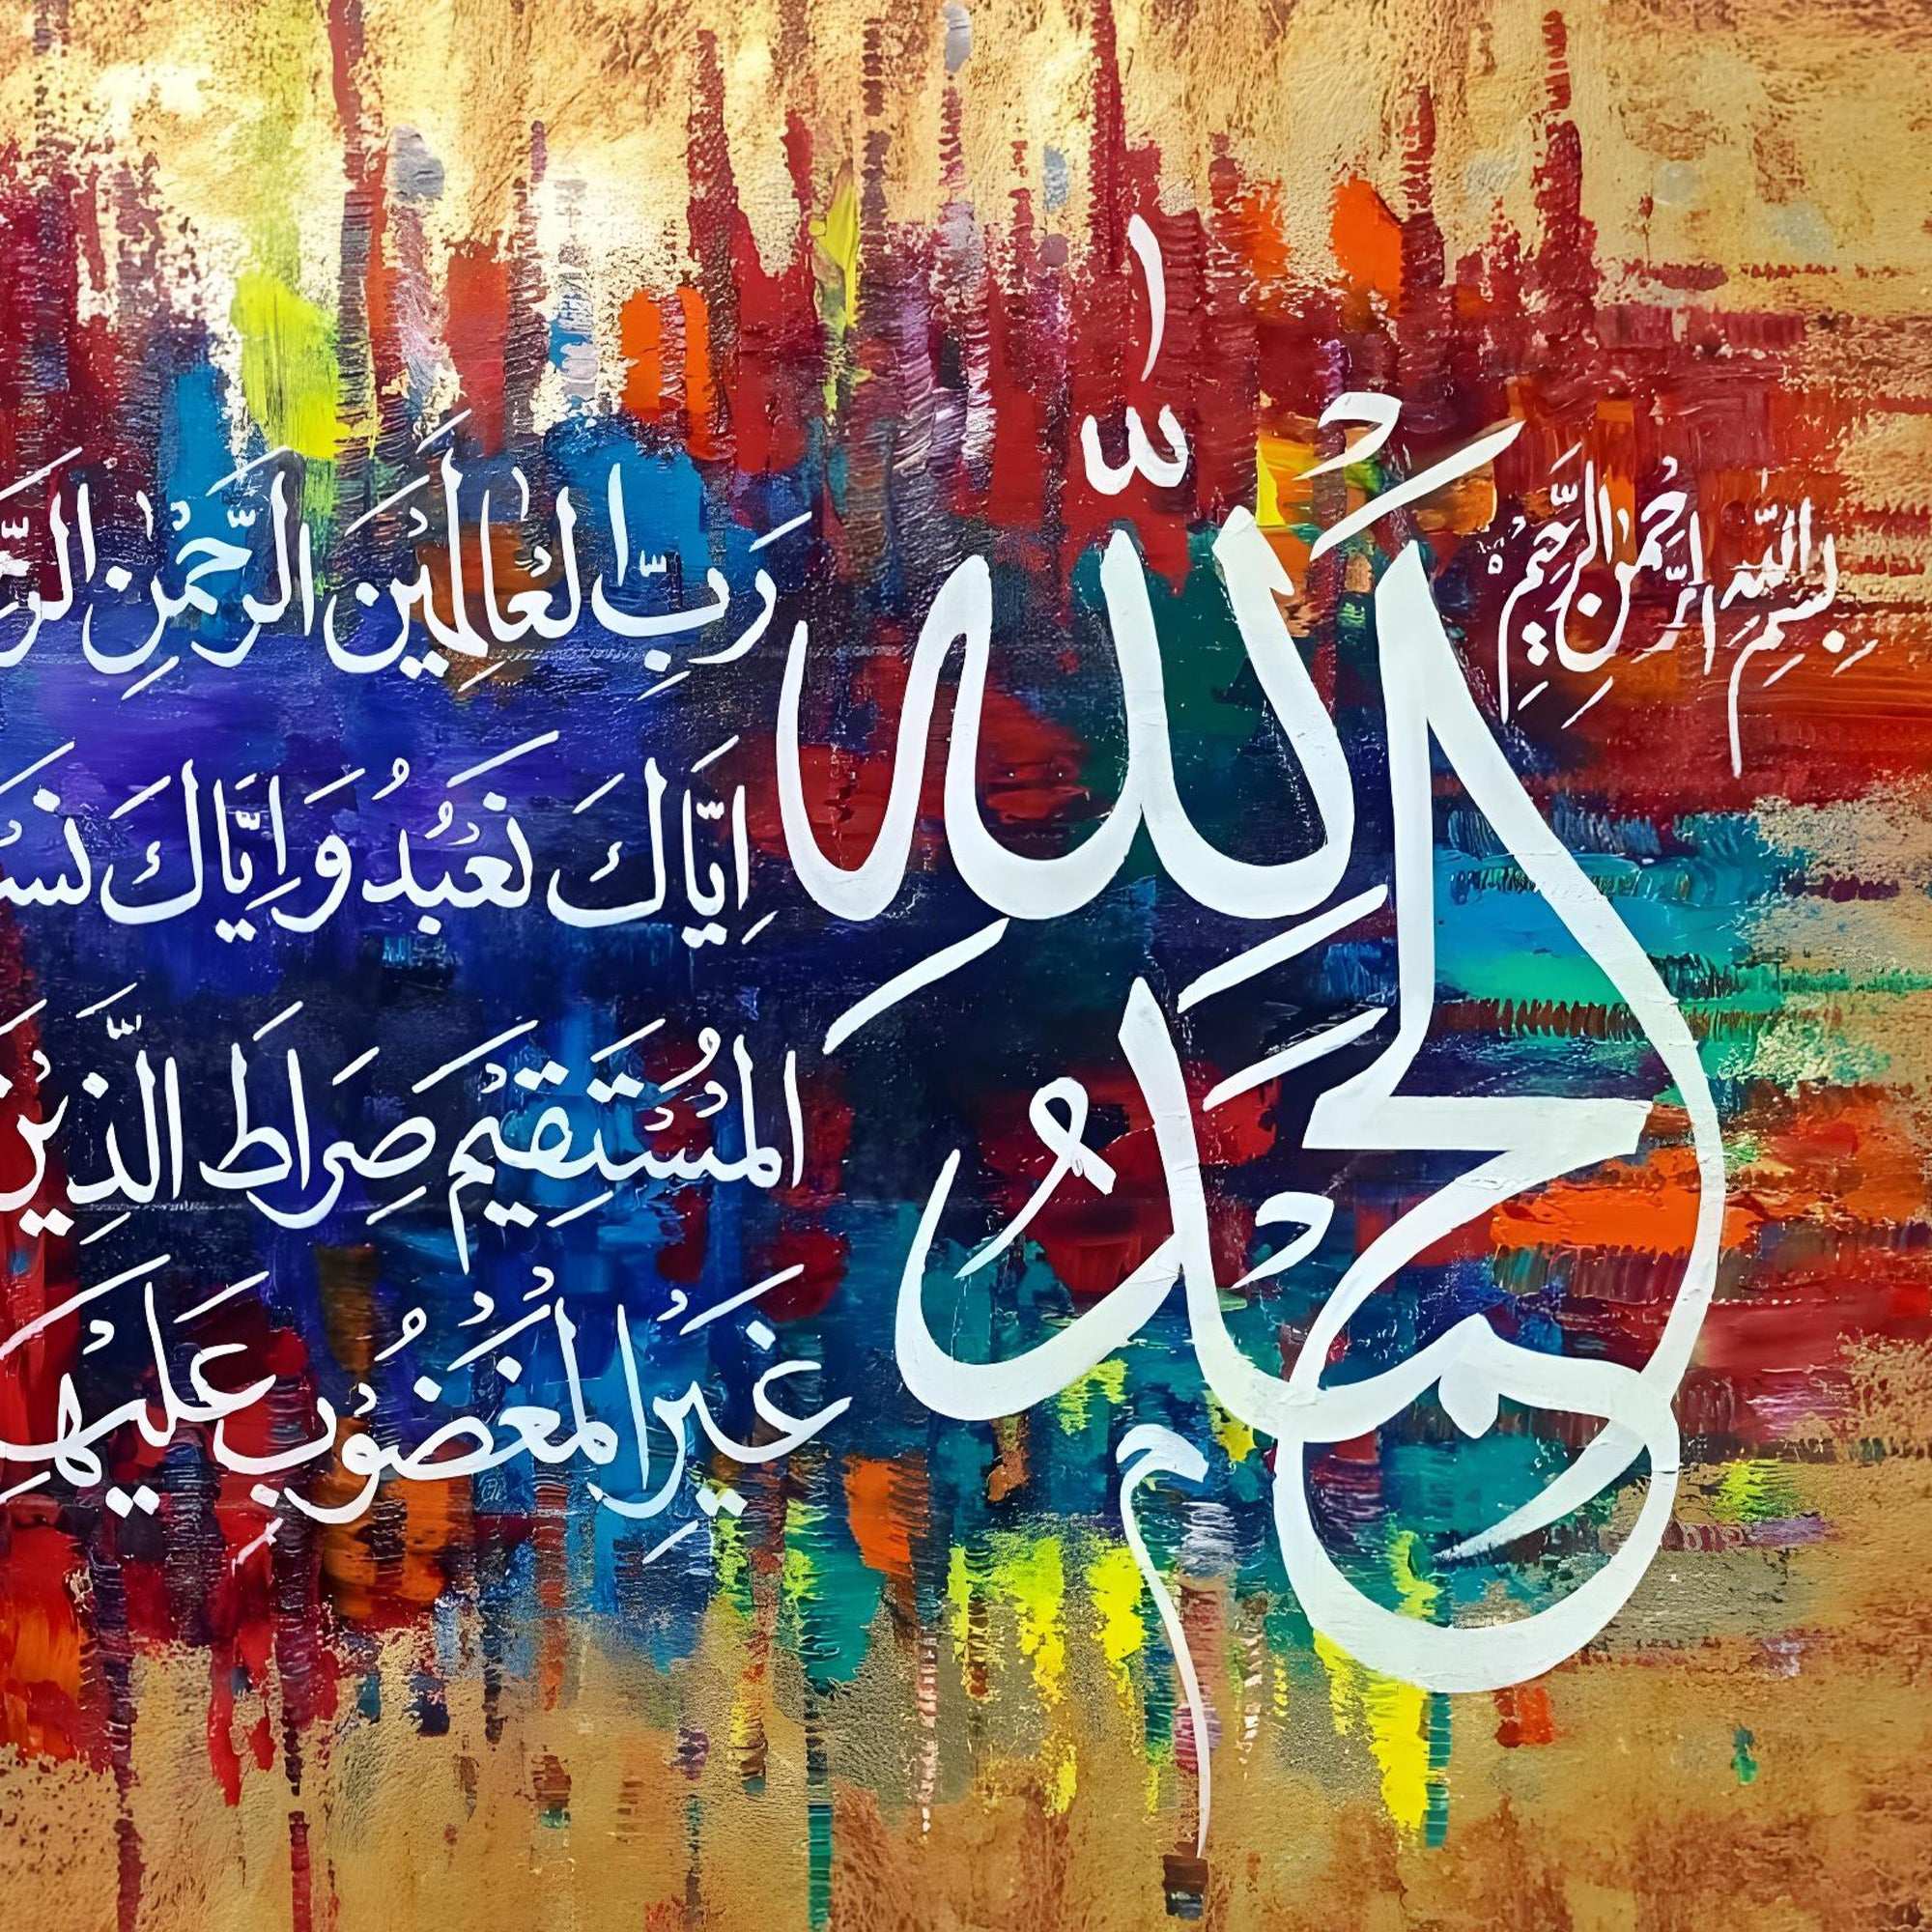 بِسْمِ اللّٰهِ الرَّحْمٰنِ الرَّحِيْمِ
اَلْحَمْدُ لِلّٰهِ
رَبِّ الْعٰالَمِيْنَ الرَّحْمٰنِ
اِيَّاكَ نَعْبُدُ وَاِيَّاكَ
الْمُسْتَقِيْمَ صِرَاطَ الَّذِيْنَ
غَيْرِ الْمَغْضُوْبِ عَلَيْهِ